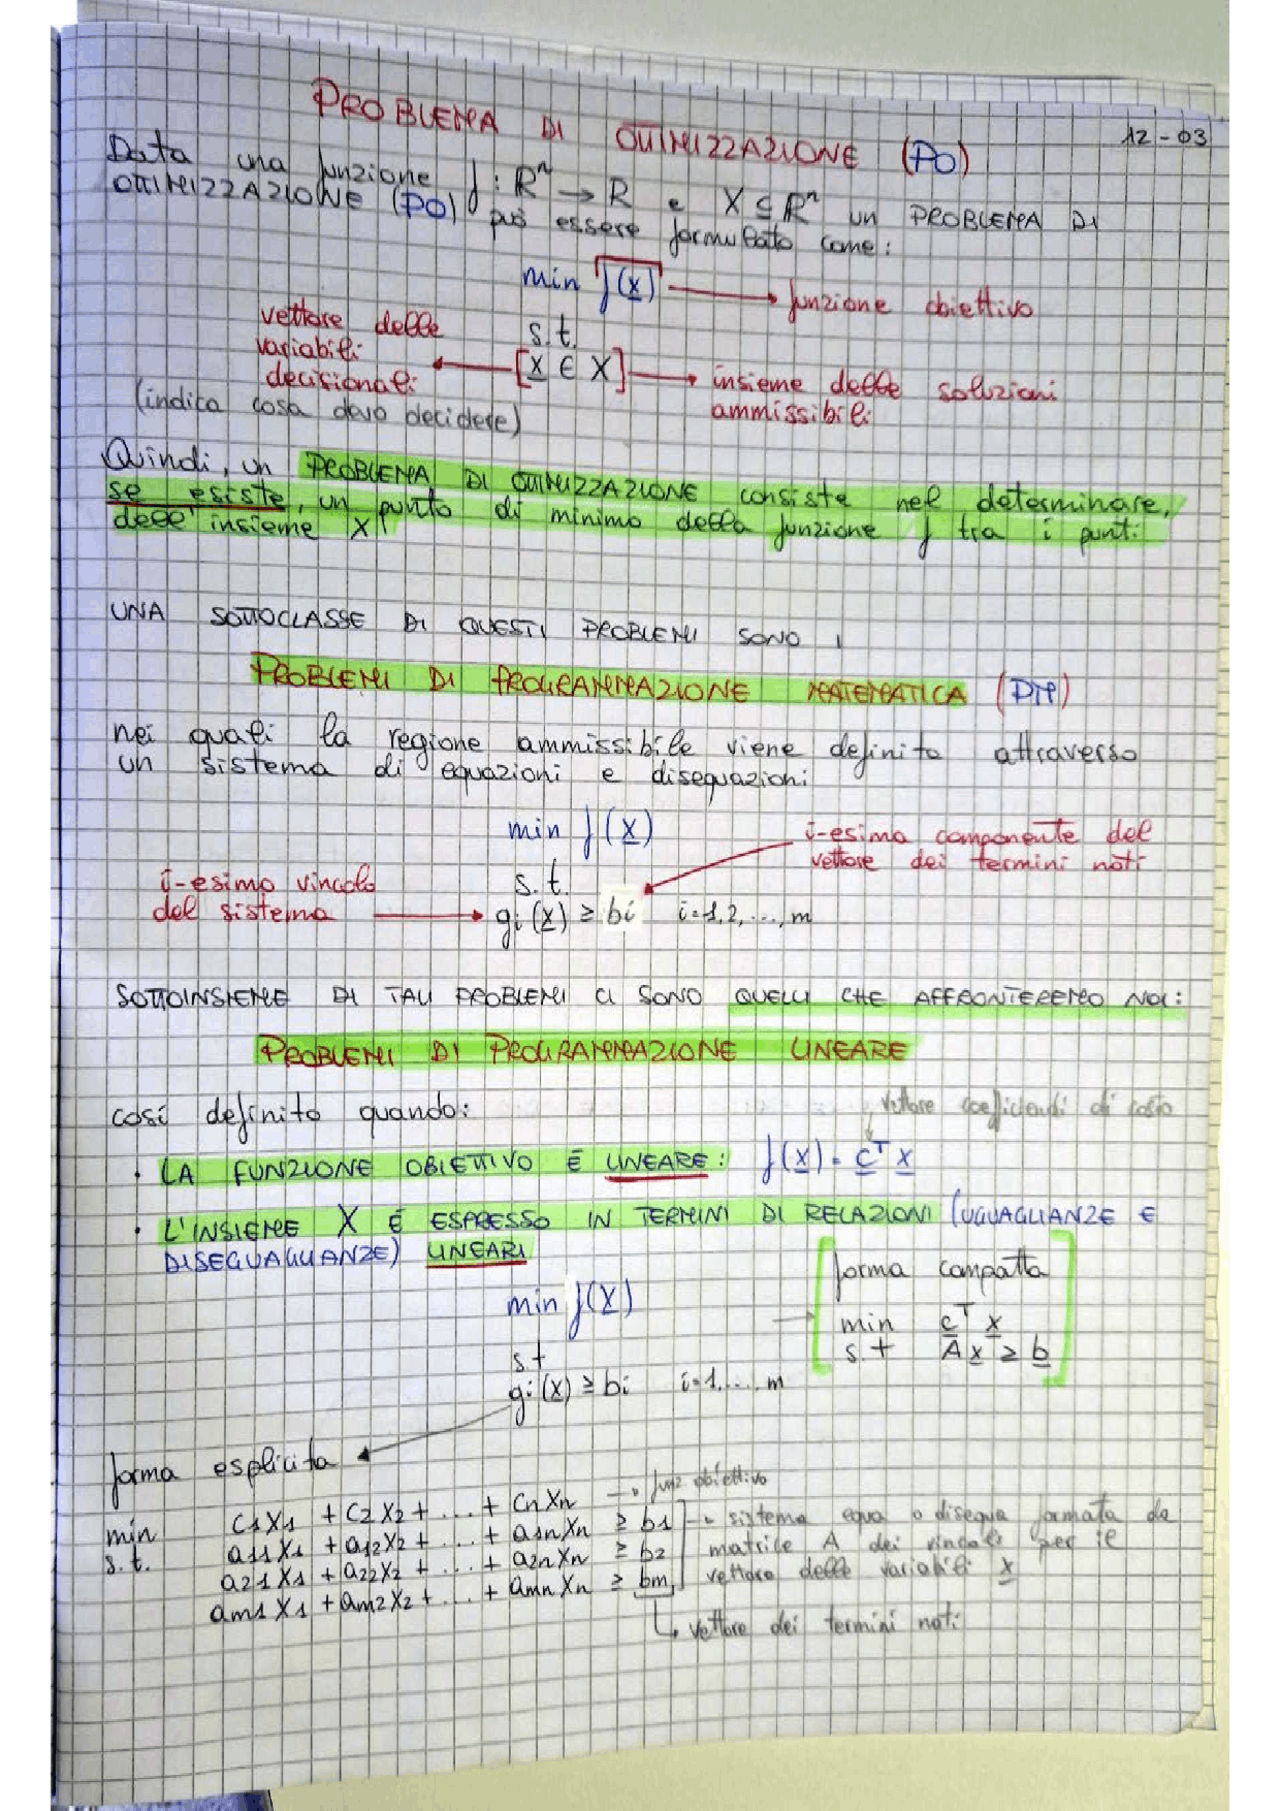 PROBLEMA DI OTTIMIZZAZIONE (PO)
12-03
Data una funzione f: Rⁿ → R e X ⊆ Rⁿ un PROBLEMA DI
OTTIMIZZAZIONE (PO) può essere formulato come:
min f(x) → funzione obiettivo
vettore delle
variabili
decisionali
(indica cosa devo decidere)
s.t.
[x ∈ X]
insieme delle soluzioni
ammissibili
Quindi, un PROBLEMA DI OTTIMIZZAZIONE consiste nel determinare,
se esiste, un punto di minimo della funzione f tra i punti
dell'insieme X
UNA SOTTOCLASSE DI QUESTI PROBLEMI SONO I
PROBLEMI DI PROGRAMMAZIONE MATEMATICA (PM)
nei quali la regione ammissibile viene definito attraverso
un sistema di equazioni e disequazioni
min f(x)
i-esima componente del
vettore dei termini noti
i-esimo vincolo
del sistema
s.t.
gi(x) ≥ bi i=1,2,...,m
SOTTOINSIEME DI TALI PROBLEMI CI SONO QUELLI CHE AFFRONTEREMO NOI:
PROBLEMI DI PROGRAMMAZIONE LINEARE
così definito quando:
vettore coefficienti di costo
· LA FUNZIONE OBIETTIVO È LINEARE: f(x) = cᵀ x
· L'INSIEME X È ESPRESSO IN TERMINI DI RELAZIONI (UGUAGLIANZE E
DISEGUAGLIANZE) LINEARI
min f(x)
s.t
gi(x) ≥ bi i=1,...,m
forma compatta
min cᵀ x
s.t A x ≥ b
forma esplicita
min c1x1 + c2x2 + ... + cnxn → funz obiettivo
s.t. a11x1 + a12x2 + ... + a1nxn ≥ b1
a21x1 + a22x2 + ... + a2nxn ≥ b2
am1x1 + am2x2 + ... + amnxn ≥ bm
→ sistema equa o disequa formata da
matrice A dei vincoli per il
vettore delle variabili x
↳ vettore dei termini noti